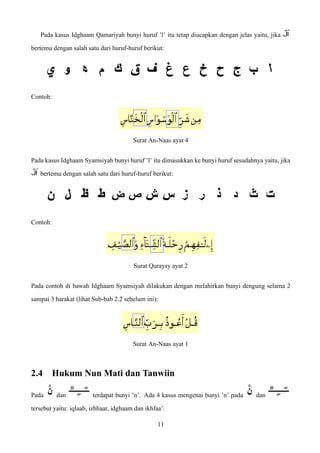 Pada kasus Idghaam Qamariyah bunyi huruf 'l' itu tetap diucapkan dengan jelas yaitu, jika اَلْ
bertemu dengan salah satu dari huruf-huruf berikut:
ا ب ج ح خ ع غ ف ق ك م ه و ي
Contoh:
مِن شَرِّ ٱلْوَسْوَاسِ ٱلْخَنَّاسِ
Surat An-Naas ayat 4
Pada kasus Idghaam Syamsiyah bunyi huruf 'l' itu dimasukkan ke bunyi huruf sesudahnya yaitu, jika
اَلْ bertemu dengan salah satu dari huruf-huruf berikut:
ت ث د ذ ر ز س ش ص ض ط ظ ل ن
Contoh:
إِۦلَـٰفِهِمْ رِحْلَةَ ٱلشِّتَآءِ وَٱلصَّيْفِ
Surat Quraysy ayat 2
Pada contoh di bawah Idghaam Syamsiyah dilakukan dengan melahirkan bunyi dengung selama 2
sampai 3 harakat (lihat Sub-bab 2.2 sebelum ini):
قُلْ أَعُوذُ بِرَبِّ ٱلنَّاسِ
Surat An-Naas ayat 1
2.4 Hukum Nun Mati dan Tanwiin
Pada نْ dan ـًـٍـٌ terdapat bunyi 'n'. Ada 4 kasus mengenai bunyi 'n' pada نْ dan ـًـٍـٌ
tersebut yaitu: iqlaab, izhhaar, idghaam dan ikhfaa'.
11